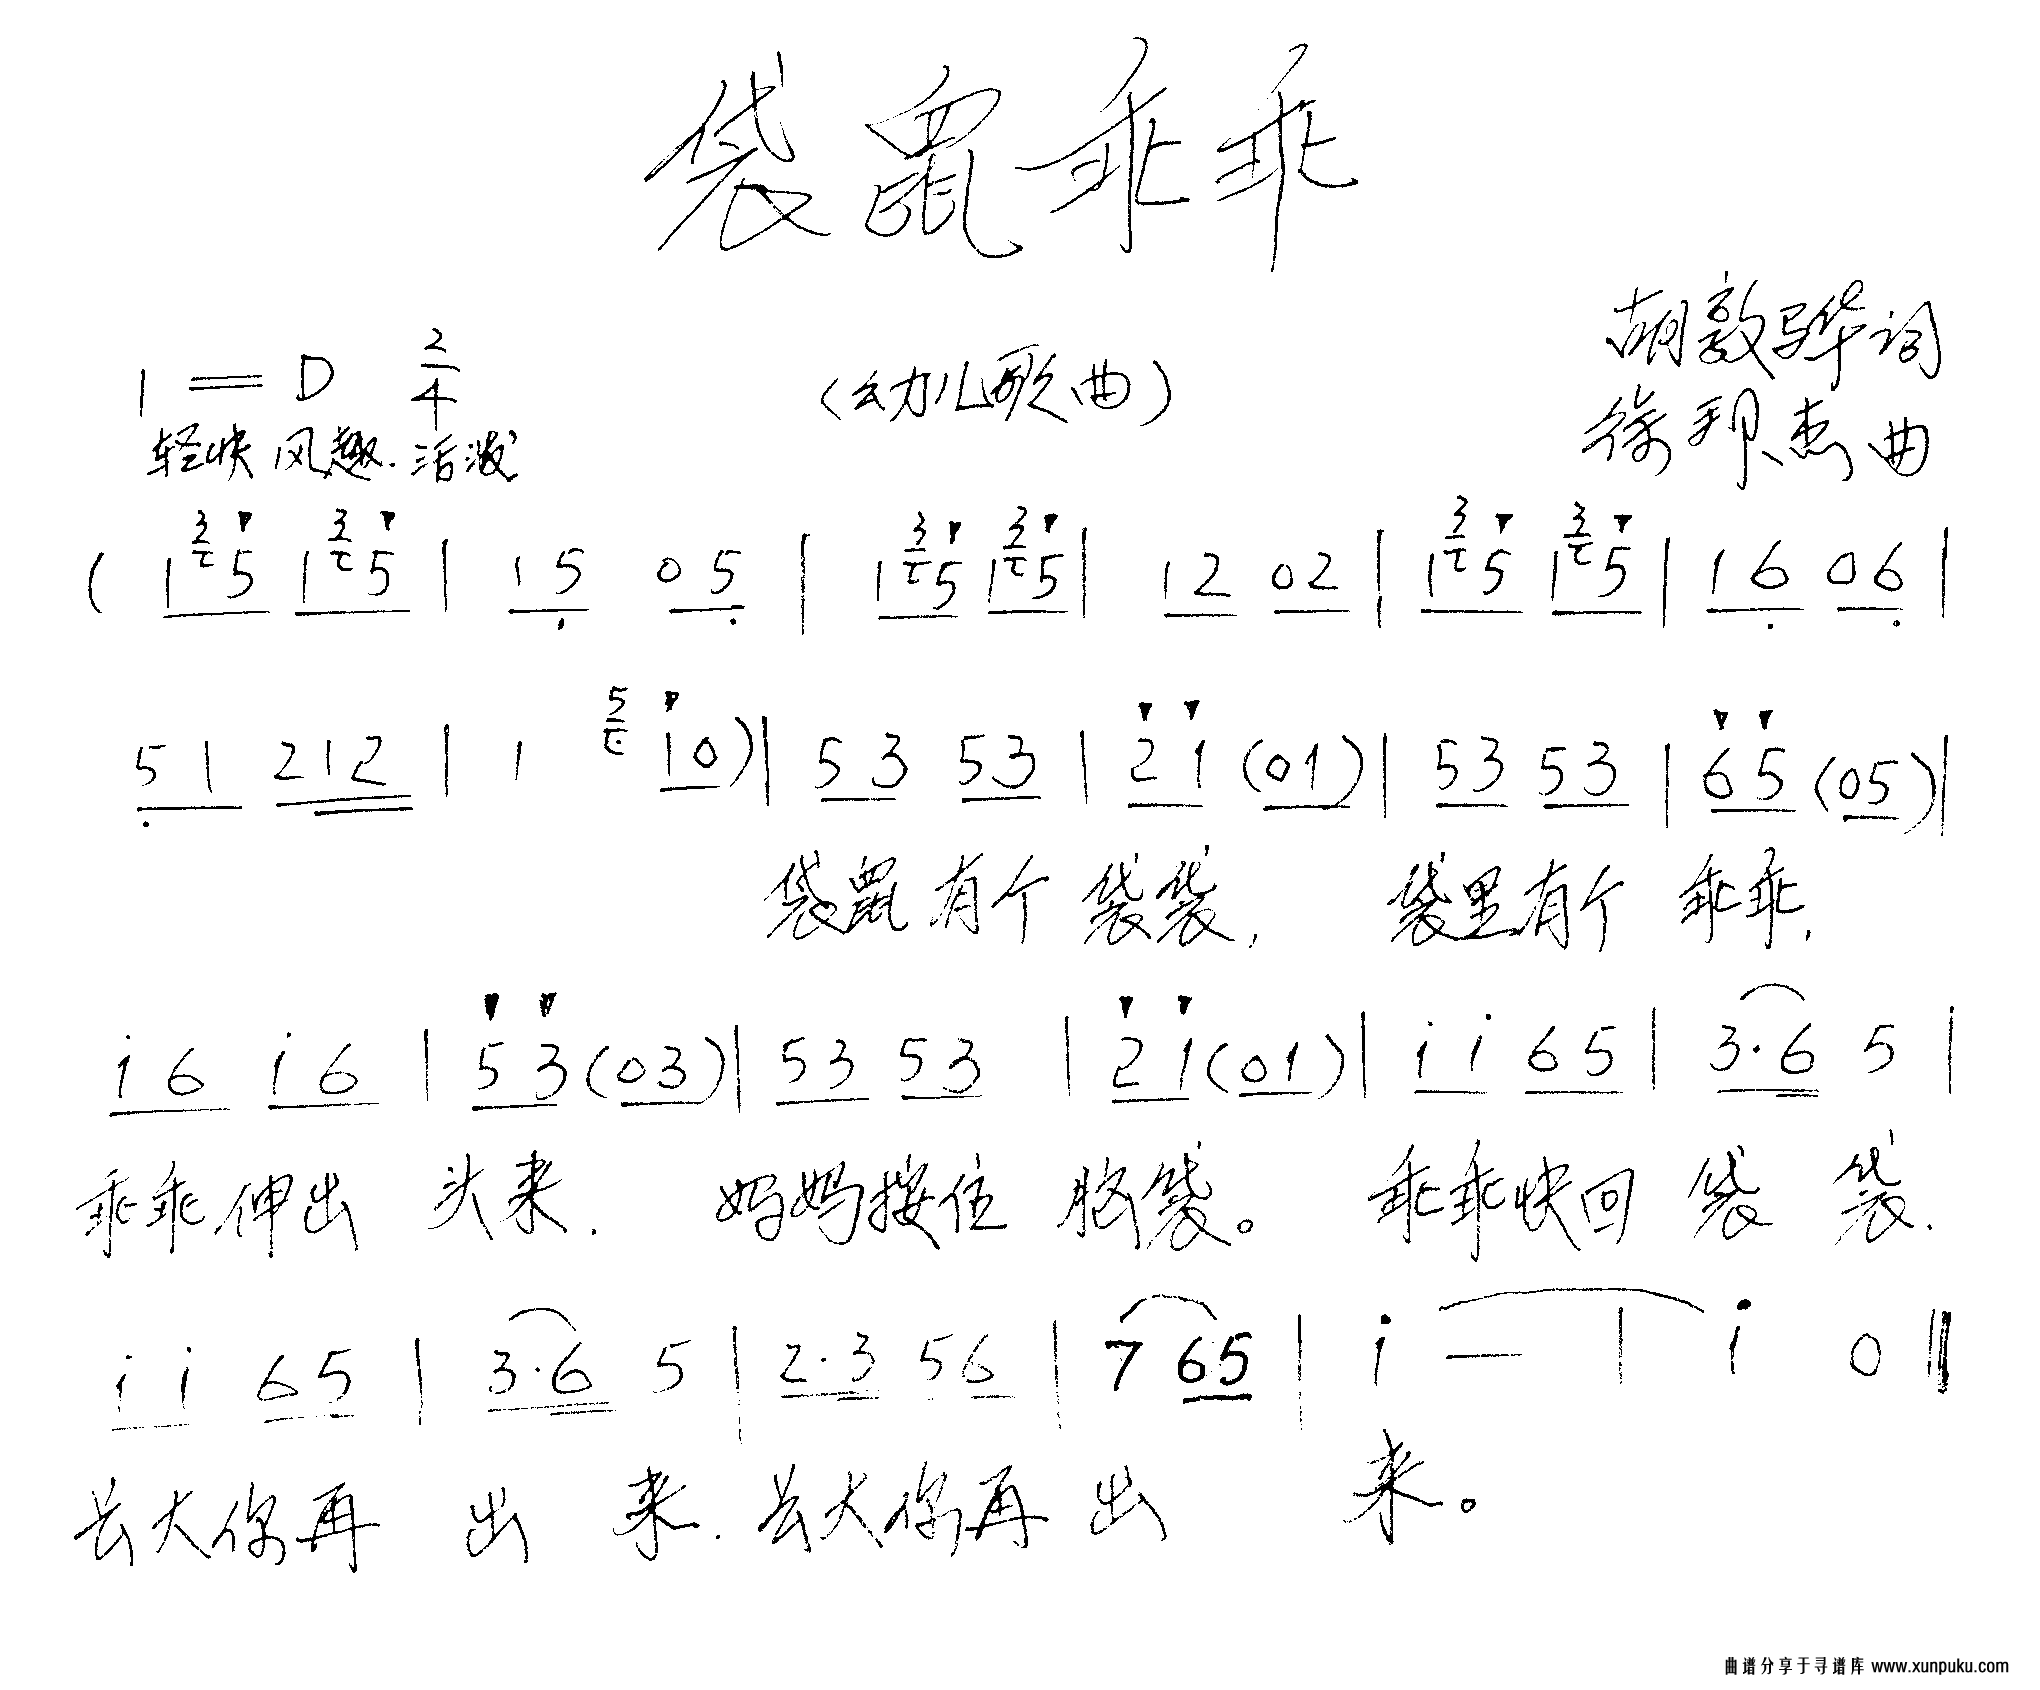 袋鼠乖乖
胡敦骅词
1=D 2/4 (幼儿歌曲)
徐邦杰曲
轻快 风趣.活泼
( 1 3 5 1 3 5 | 1 5 0 5 | 1 3 5 1 3 5 | 1 2 0 2 | 1 3 5 1 3 5 | 1 6 0 6 |
5 1 2 1 2 | 1 5 1 0 ) | 5 3 5 3 | 2 1 (0 1) | 5 3 5 3 | 6 5 (0 5) |
袋鼠有个 袋袋, 袋里有个 乖乖,
i 6 i 6 | 5 3 (0 3) | 5 3 5 3 | 2 1 (0 1) | i i 6 5 | 3·6 5 |
乖乖伸出 头来. 妈妈按住 脑袋。 乖乖快回 袋 袋.
i i 6 5 | 3·6 5 | 2·3 5 6 | 7 6 5 | i — | i 0 ‖
长大你再 出 来. 长大你再 出 来。
曲谱分享于寻谱库 www.xunpuku.com